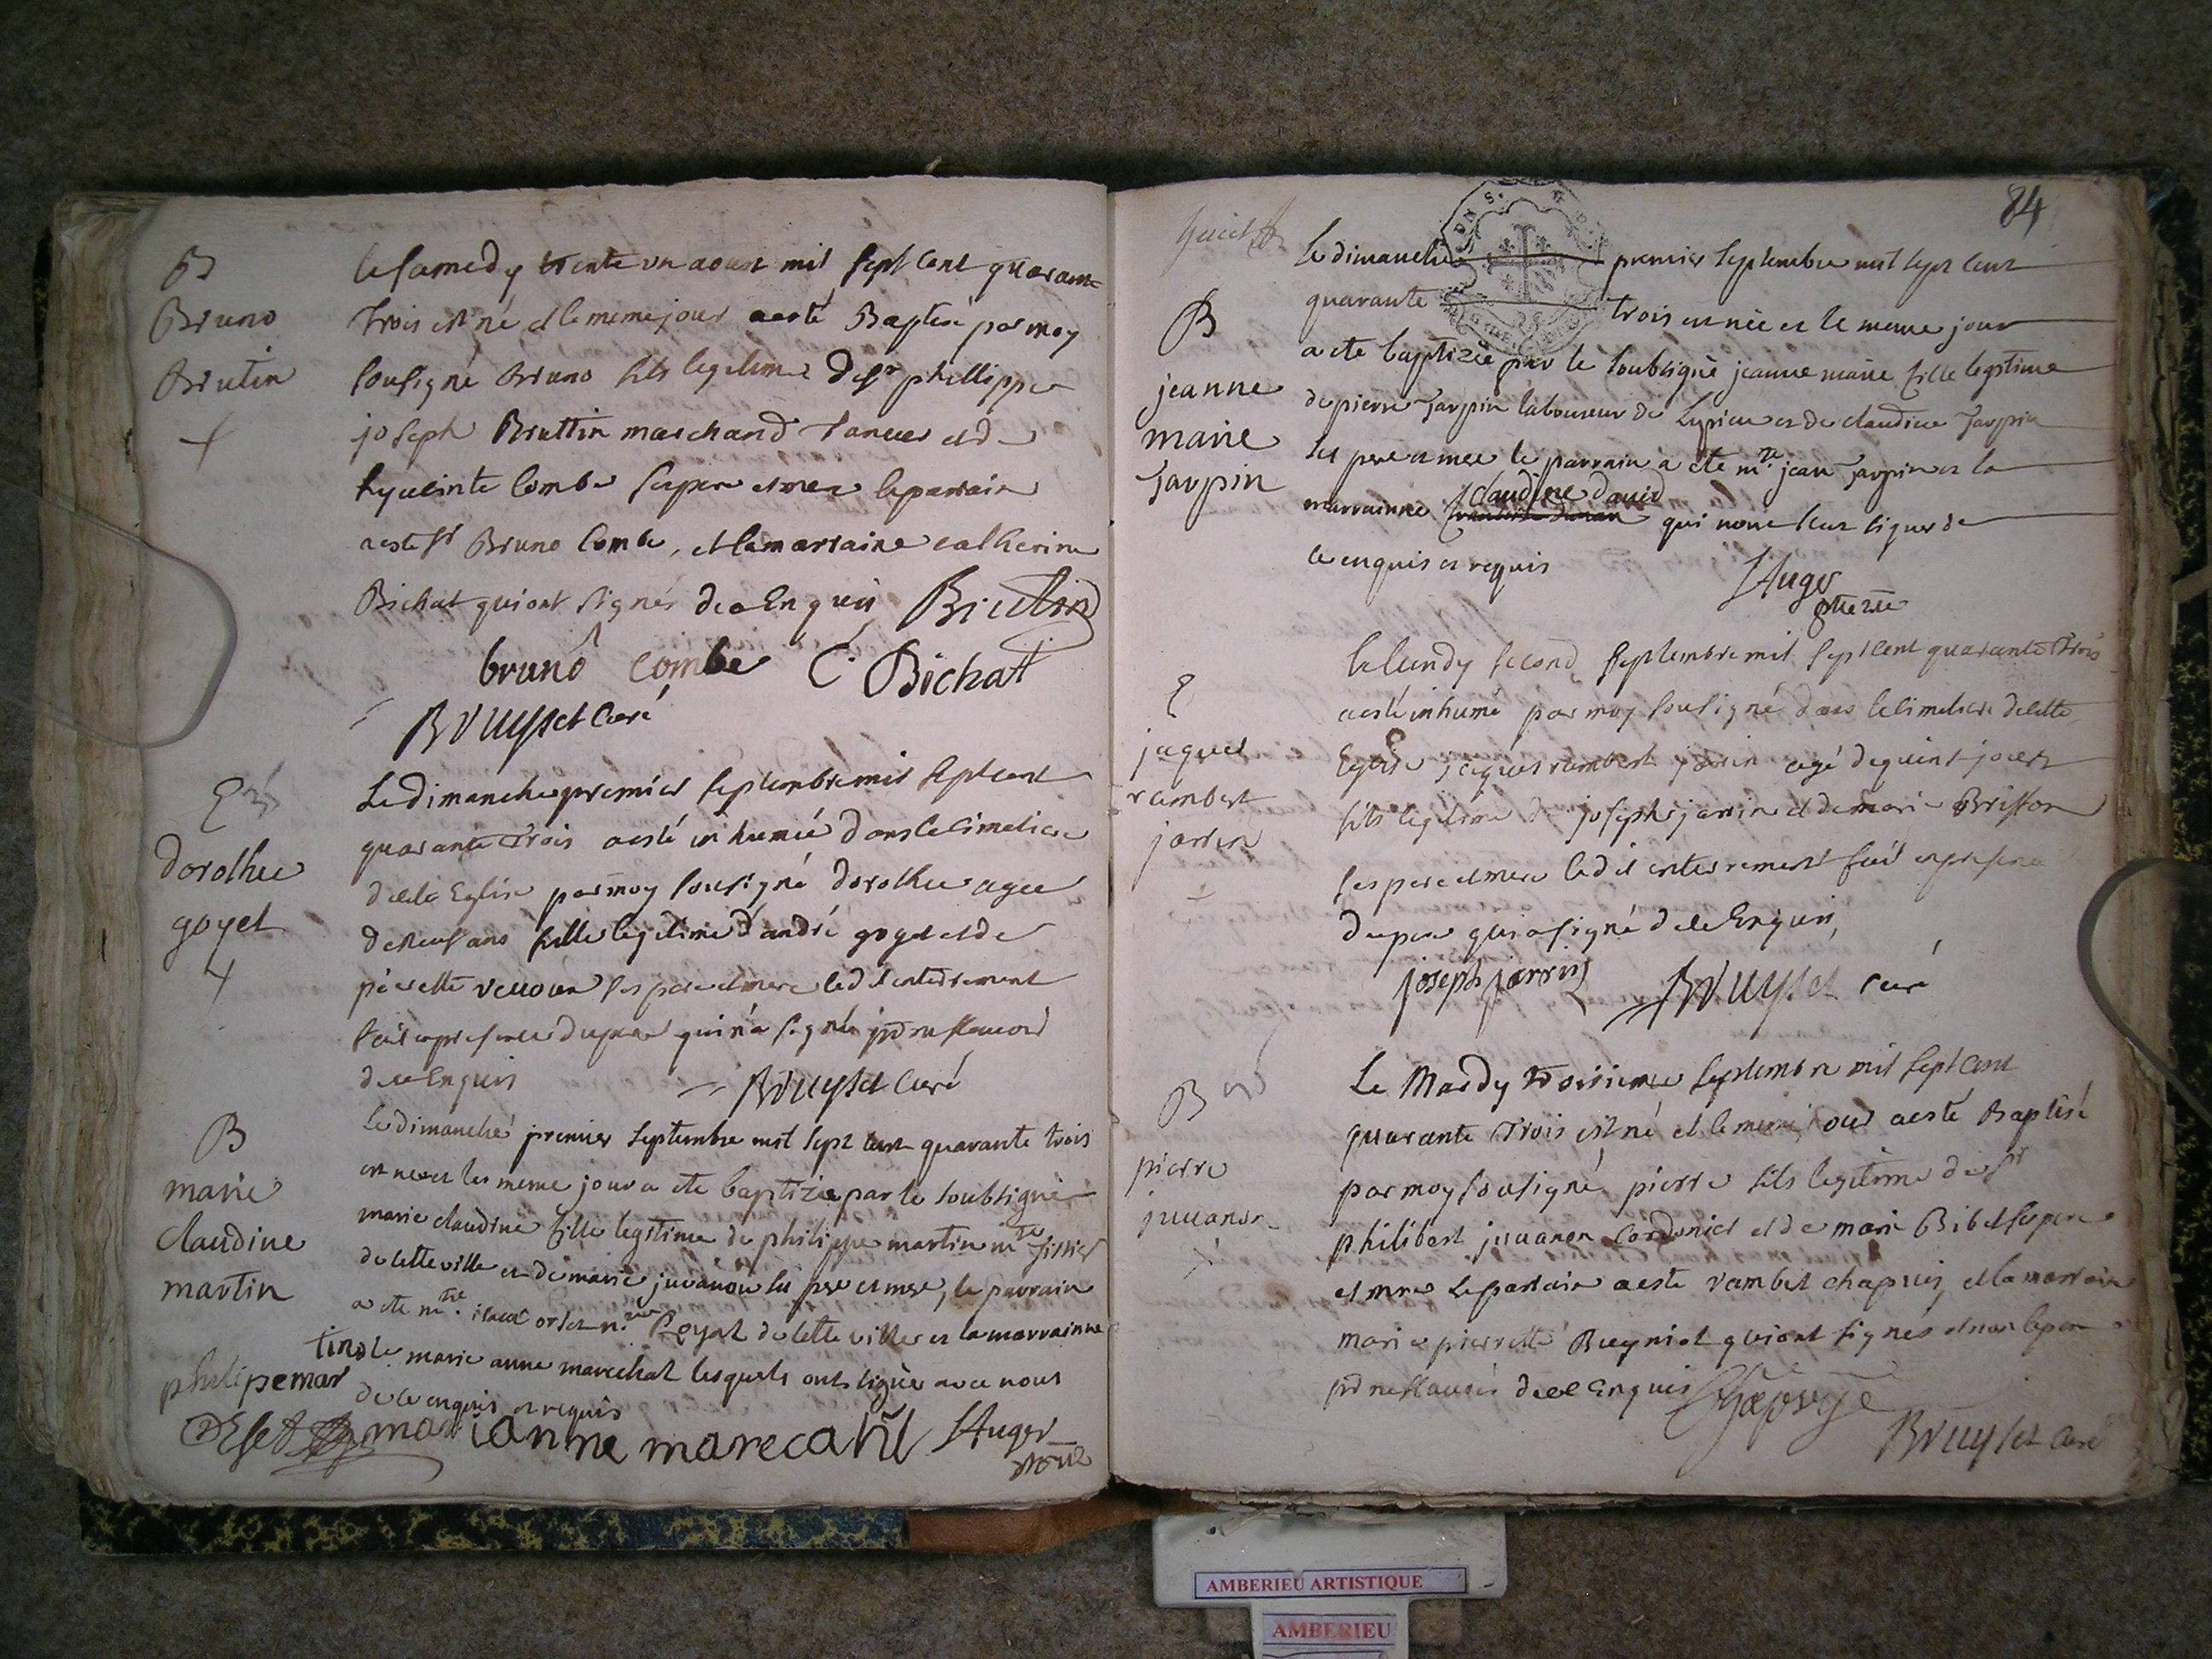 B
Bruno
Brutin
le samedy trente un aoust mil sept cent quarante
trois est né et le meme jour a esté Baptisé par moy
sousigné Bruno fils legitime de sr phillippe
joseph Bruttin marchand taneur et de
hyacinte Combe ses pere et mere le parrain
a esté sr Bruno Combe, et la marraine catherine
Bichat qui ont signés de ce Enquis Brutin
bruno combe C. Bichat
Bruyset Curé
E
dorothee
goyet
Le dimanche premier septembre mil sept cent
quarante trois a esté inhumée dans le cimetiere
de cette Eglise par moy sousigné dorothee agee
de neuf ans fille legitime d'andré goyet et de
pierrette ses pere et mere le dit enterrement
fait en presence du pere qui n'a signé pr ne scavoir
de ce Enquis Bruyset Curé
B
marie
claudine
martin
Le dimanche premier septembre mil sept cent quarante trois
est nee et le meme jour a ete baptizée par le soubsigné
marie claudine fille legitime de philippe martin mtre
de cette ville et de marie juvanon ses pere et mere, le parrain
a ete mtre orset Royal de cette ville et la marrainne
dlle marie anne marechat lesquels ont signé avec nous
de ce enquis et requis
philipe martin
orset marianne marecahl Auger
ptre vic
84
B
jeanne
marie
Jarpin
Le dimanche premier septembre mil sept cent
quarante trois est née et le meme jour
a ete baptizée par le soubsigné jeanne marie fille legitime
de pierre Jarpin laboureur de et de claudine Jarpin
ses pere et mere le parrain a ete mtre jean Jarpin et la
marrainne claudine david qui n'ont sceu signer de
ce enquis et requis
Auger
ptre vic
E
jaques
rambert
jarrin
Le lundy second septembre mil sept cent quarante trois
a esté inhumé par moy sousigné dans le cimetiere de cette
Eglise jaques rambert jarrin agé de quinze jours
fils legitime de joseph jarrin et de marie Brisson
ses pere et mere le dit enterrement fait en presence
du pere qui a signé de ce Enquis,
joseph jarrin Bruyset curé
B
pierre
juvanon
Le Mardy troisieme septembre mil sept cent
quarante trois est né et le meme jour a esté Baptisé
par moy sousigné, pierre fils legitime de sr
philibert juvanon Cordonier et de marie Bibet ses pere
et mere le parrain a esté rambert chapuis, et la marraine
marie pierrette Reyniet qui ont signés et non le pere
pr ne scavoir de ce Enquis
Bruyset Curé
AMBERIEU ARTISTIQUE
AMBERIEU